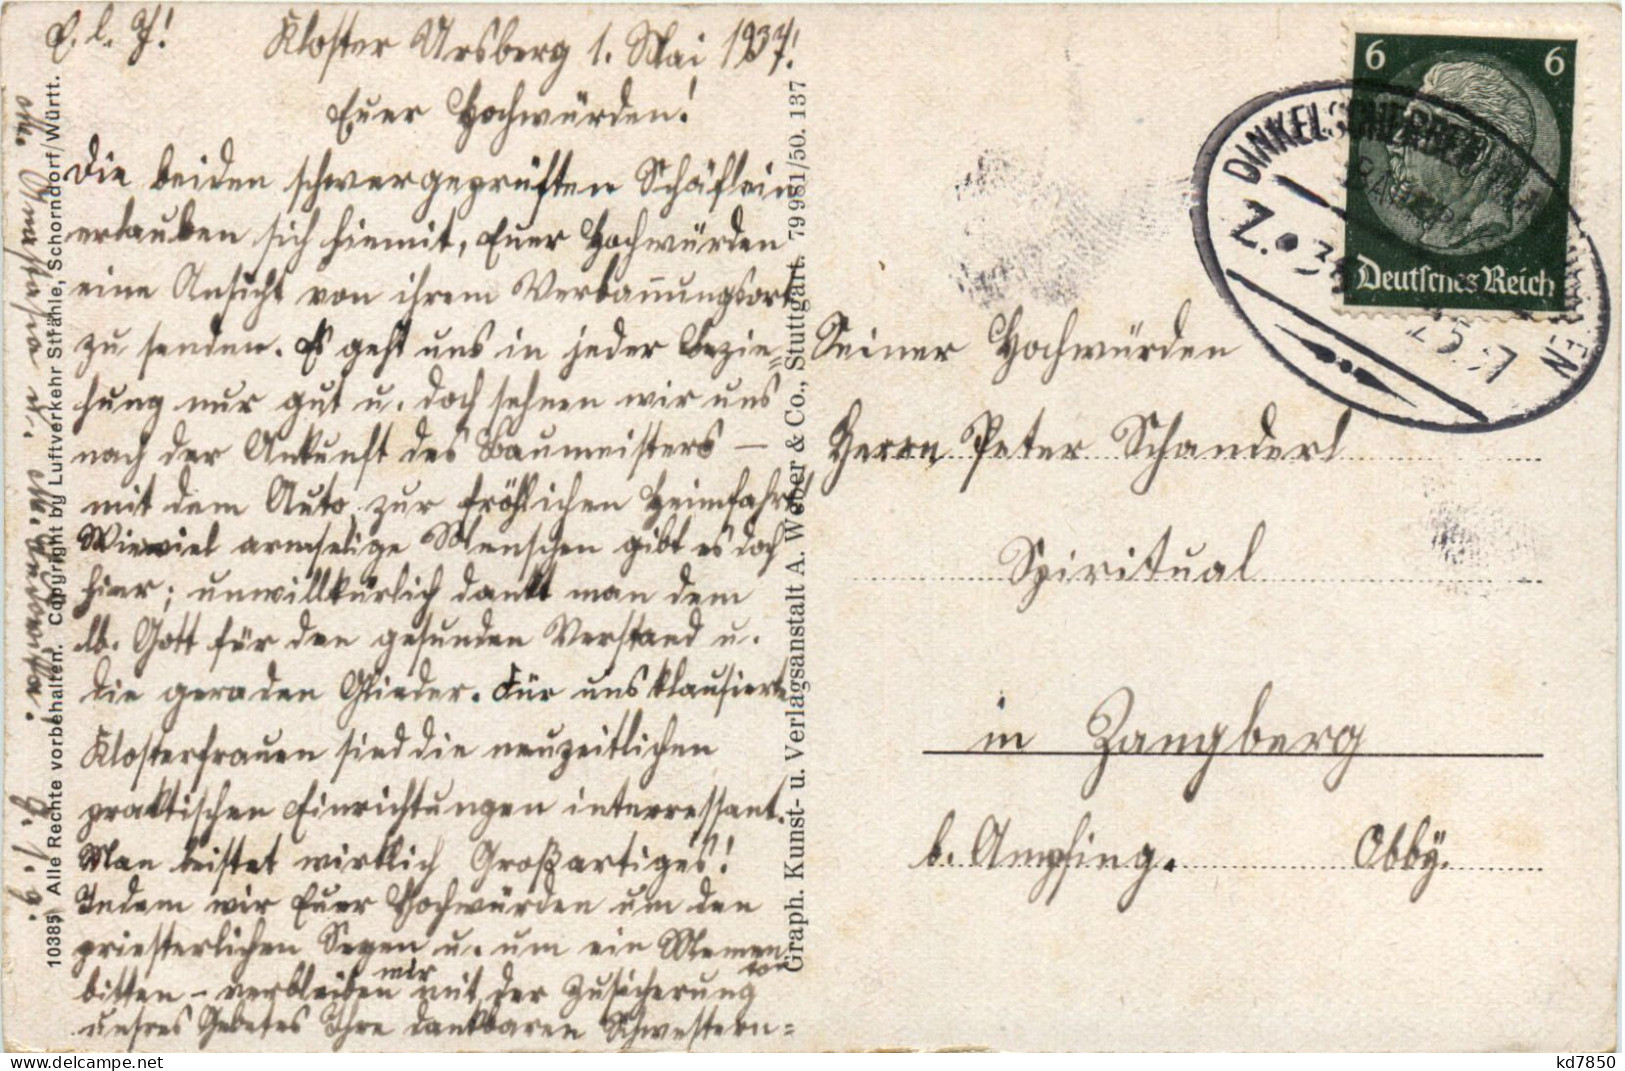 G. l. J!
Kloster Ursberg 1. Mai 1937!
Euer Hochwürden!
Die beiden schwergeprüften Schäflein
erlauben sich hiemit, Euer Hochwürden
eine Ansicht von ihrem Verbannungsort
zu senden. Es geht uns in jeder Bezie=
hung nur gut u. doch sehnen wir uns
nach der Ankunft des Baumeisters —
mit dem Auto zur fröhlichen Heimfahrt.
Wieviel armselige Menschen gibt es doch
hier; unwillkürlich dankt man dem
lb. Gott für den gesunden Verstand u.
die geraden Glieder. Für uns klausierte
Klosterfrauen sind die neuzeitlichen
praktischen Einrichtungen interressant.
Man leistet wirklich Großartiges!
Indem wir Euer Hochwürden um den
priesterlichen Segen u. um ein Memen
to
bitten – verbleiben wir mit der Zusicherung
unsres Gebetes Ihre dankbaren Schwestern=
M. u. M.
g. J. g.
10385 Alle Rechte vorbehalten. Copyright by Luftverkehr Strähle, Schorndorf/Württ.
Graph. Kunst- u. Verlagsanstalt A. Weber & Co., Stuttgart. 79 981/50. 137
6 6
Deutsches Reich
DINKELSCHERBEN
BAHNPOST
Z.
Seiner Hochwürden
Herrn Peter Schanderl
Spiritual
in Zangberg
b. Ampfing. Obby.
delcampe.net
kd7850